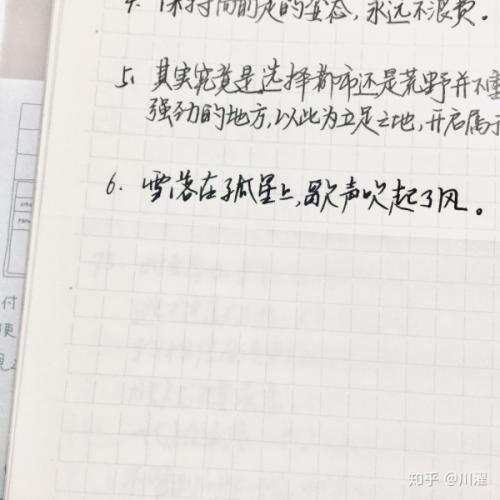 4. 保持向前走的姿态,永远不浪费。
5. 其实究竟是选择都市还是荒野并不重
强劲的地方,以此为立足之地,开启属于
6. 雪落在孤星上,歌声吹起了风。
付
使
知乎 @川濯